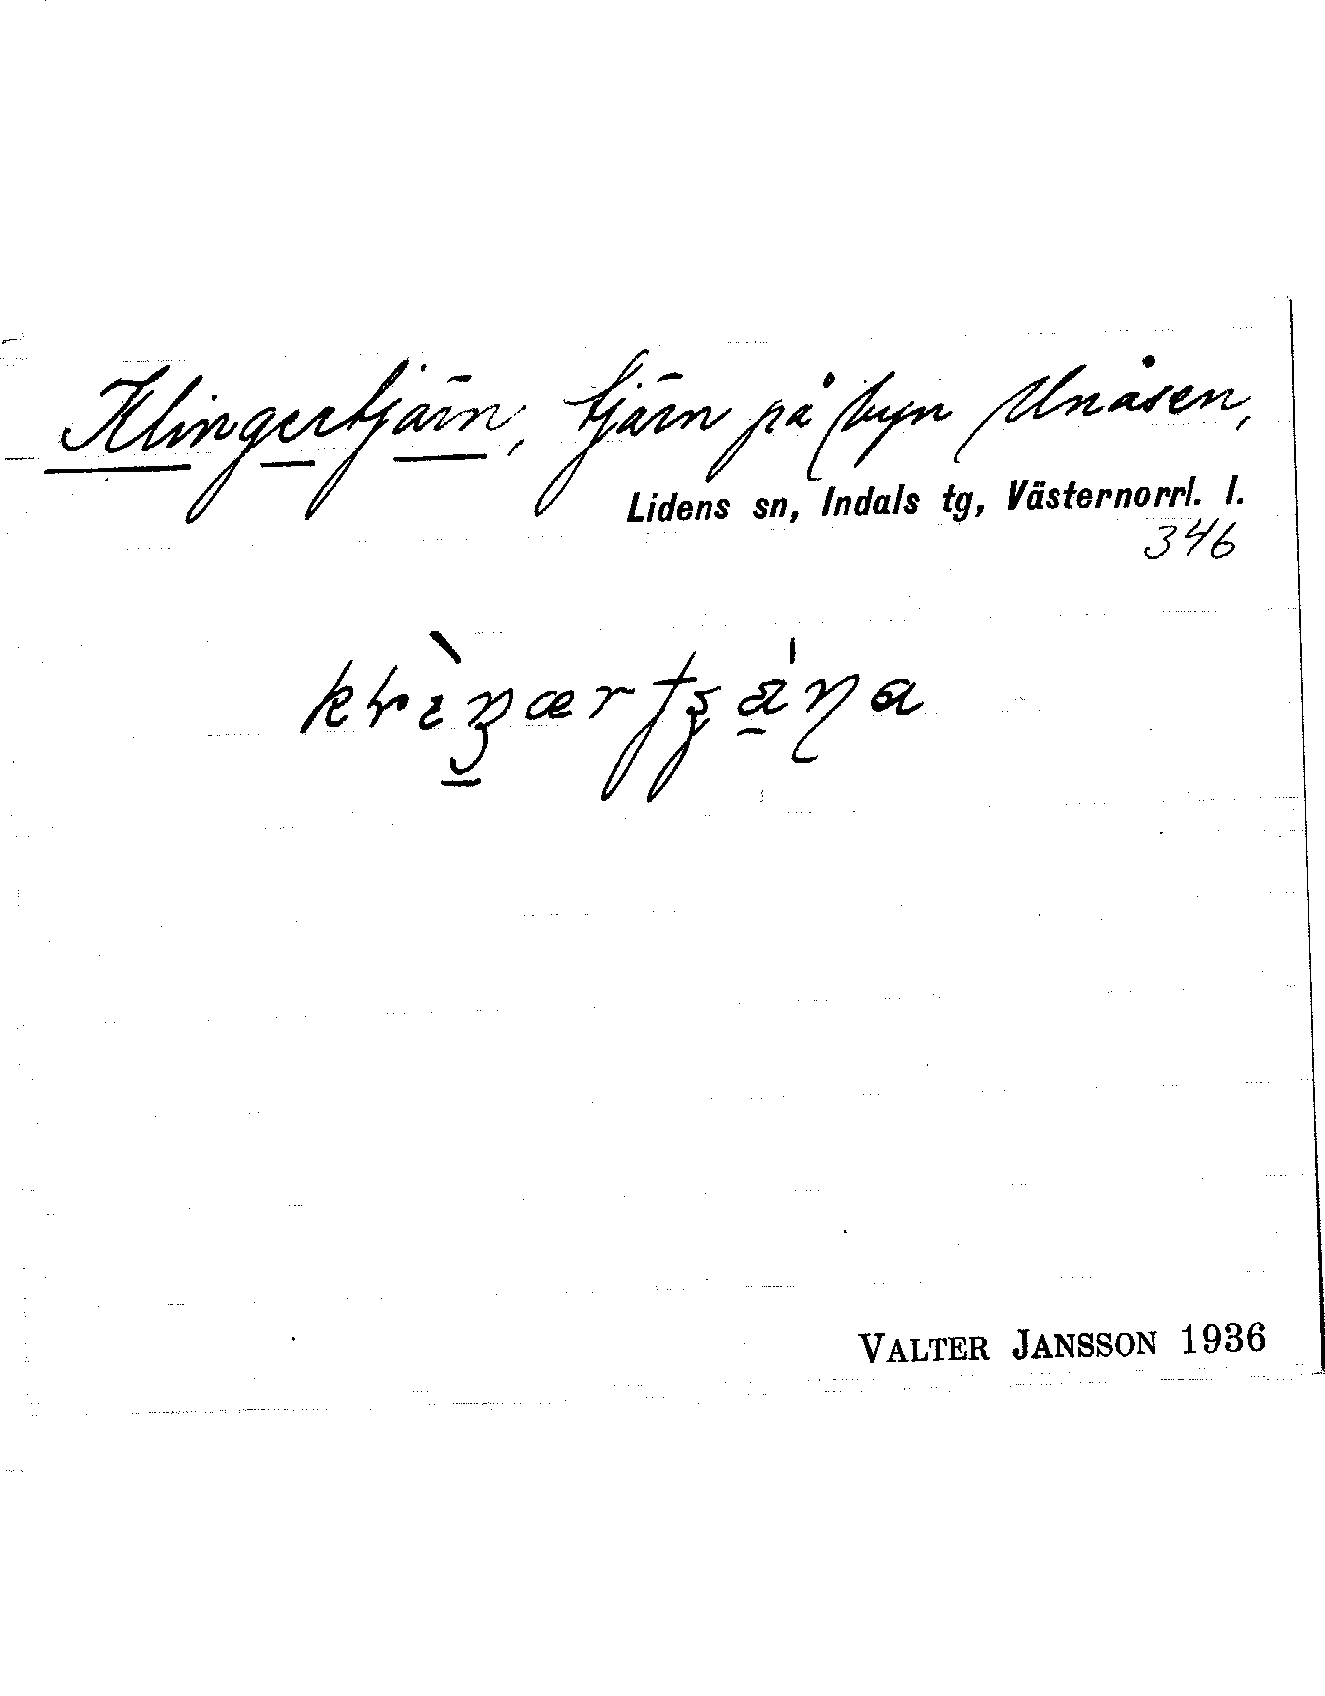 Klingertjärn, tjärn på byn Unåsen,
Lidens sn, Indals tg, Västernorrl. l.
346
VALTER JANSSON 1936